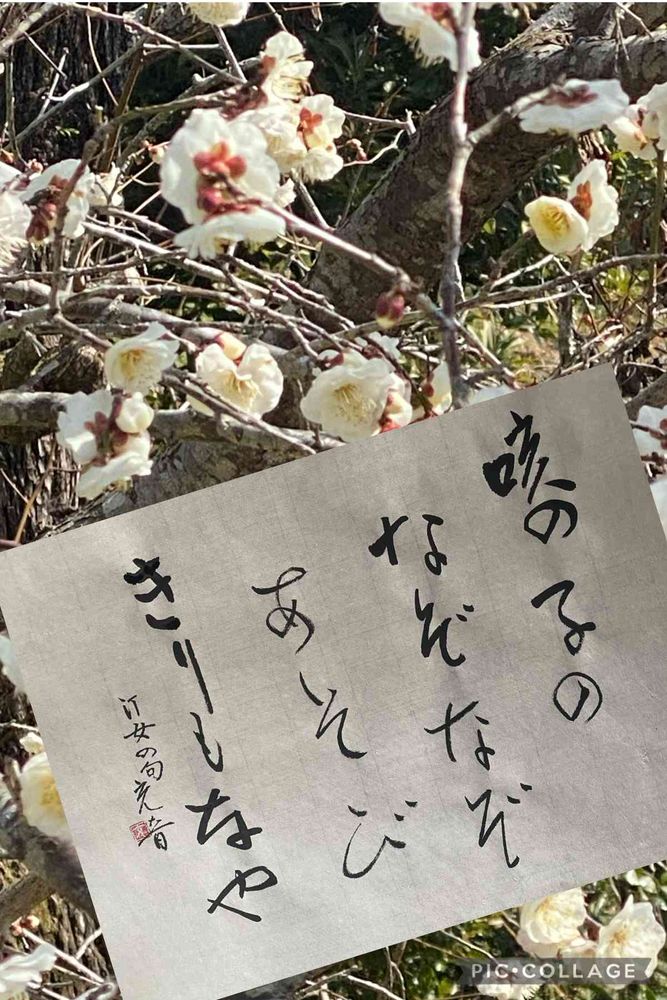 咳の子の
なぞなぞ
あそび
きりもなや
汀女の句
PIC•COLLAGE